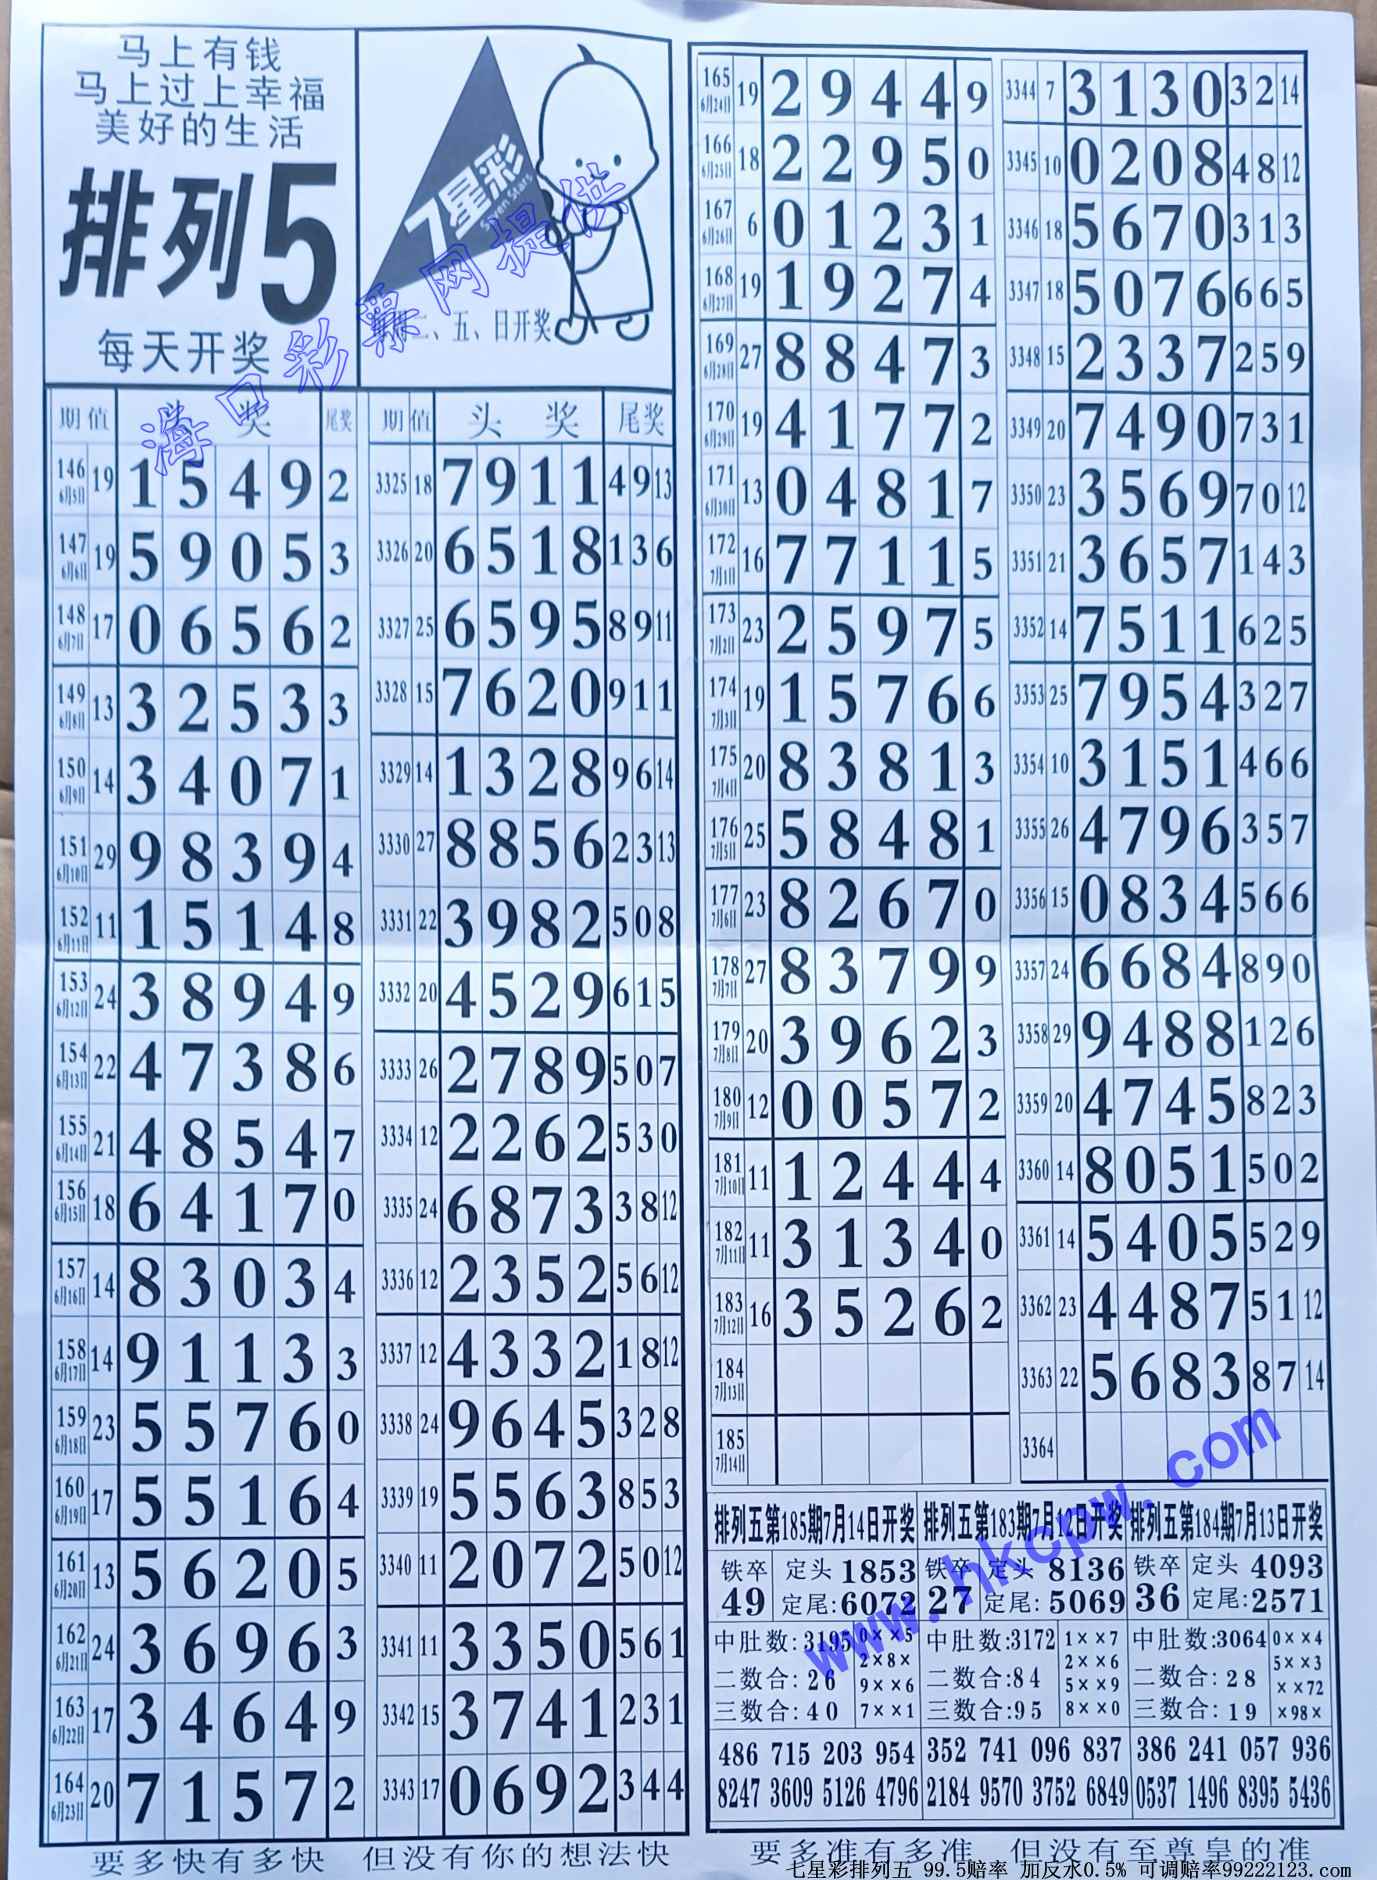 马上有钱
马上过上幸福
美好的生活
排列5
每天开奖
7星彩
Seven Stars
二、五、日开奖
海口彩票网提供
期 值 头 奖 尾奖
146 6月5日 19 1 5 4 9 2
147 6月6日 19 5 9 0 5 3
148 6月7日 17 0 6 5 6 2
149 6月8日 13 3 2 5 3 3
150 6月9日 14 3 4 0 7 1
151 6月10日 29 9 8 3 9 4
152 6月11日 11 1 5 1 4 8
153 6月12日 24 3 8 9 4 9
154 6月13日 22 4 7 3 8 6
155 6月14日 21 4 8 5 4 7
156 6月15日 18 6 4 1 7 0
157 6月16日 14 8 3 0 3 4
158 6月17日 14 9 1 1 3 3
159 6月18日 23 5 5 7 6 0
160 6月19日 17 5 5 1 6 4
161 6月20日 13 5 6 2 0 5
162 6月21日 24 3 6 9 6 3
163 6月22日 17 3 4 6 4 9
164 6月23日 20 7 1 5 7 2
期 值 头 奖 尾奖
3325 18 7 9 1 1 4 9 13
3326 20 6 5 1 8 1 3 6
3327 25 6 5 9 5 8 9 11
3328 15 7 6 2 0 9 1 1
3329 14 1 3 2 8 9 6 14
3330 27 8 8 5 6 2 3 13
3331 22 3 9 8 2 5 0 8
3332 20 4 5 2 9 6 1 5
3333 26 2 7 8 9 5 0 7
3334 12 2 2 6 2 5 3 0
3335 24 6 8 7 3 3 8 12
3336 12 2 3 5 2 5 6 12
3337 12 4 3 3 2 1 8 12
3338 24 9 6 4 5 3 2 8
3339 19 5 5 6 3 8 5 3
3340 11 2 0 7 2 5 0 12
3341 11 3 3 5 0 5 6 1
3342 15 3 7 4 1 2 3 1
3343 17 0 6 9 2 3 4 4
要多快有多快 但没有你的想法快
165 6月24日 19 2 9 4 4 9
166 6月25日 18 2 2 9 5 0
167 6月26日 6 0 1 2 3 1
168 6月27日 19 1 9 2 7 4
169 6月28日 27 8 8 4 7 3
170 6月29日 19 4 1 7 7 2
171 6月30日 13 0 4 8 1 7
172 7月1日 16 7 7 1 1 5
173 7月2日 23 2 5 9 7 5
174 7月3日 19 1 5 7 6 6
175 7月4日 20 8 3 8 1 3
176 7月5日 25 5 8 4 8 1
177 7月6日 23 8 2 6 7 0
178 7月7日 27 8 3 7 9 9
179 7月8日 20 3 9 6 2 3
180 7月9日 12 0 0 5 7 2
181 7月10日 11 1 2 4 4 4
182 7月11日 11 3 1 3 4 0
183 7月12日 16 3 5 2 6 2
184 7月13日
185 7月14日
3344 7 3 1 3 0 3 2 14
3345 10 0 2 0 8 4 8 12
3346 18 5 6 7 0 3 1 3
3347 18 5 0 7 6 6 6 5
3348 15 2 3 3 7 2 5 9
3349 20 7 4 9 0 7 3 1
3350 23 3 5 6 9 7 0 12
3351 21 3 6 5 7 1 4 3
3352 14 7 5 1 1 6 2 5
3353 25 7 9 5 4 3 2 7
3354 10 3 1 5 1 4 6 6
3355 26 4 7 9 6 3 5 7
3356 15 0 8 3 4 5 6 6
3357 24 6 6 8 4 8 9 0
3358 29 9 4 8 8 1 2 6
3359 20 4 7 4 5 8 2 3
3360 14 8 0 5 1 5 0 2
3361 14 5 4 0 5 5 2 9
3362 23 4 4 8 7 5 1 12
3363 22 5 6 8 3 8 7 14
3364
排列五第185期7月14日开奖
铁卒 49 定头 1853
定尾:6072
中肚数:3195
二数合:26
三数合:40
0××5
2×8×
9××6
7××1
486 715 203 954
8247 3609 5126 4796
排列五第183期7月12日开奖
铁卒 27 定头 8136
定尾:5069
中肚数:3172
二数合:84
三数合:95
1××7
2××6
5××9
8××0
352 741 096 837
2184 9570 3752 6849
排列五第184期7月13日开奖
铁卒 36 定头 4093
定尾:2571
中肚数:3064
二数合:28
三数合:19
0××4
5××3
××72
×98×
386 241 057 936
0537 1496 8395 5436
www.hkcpw.com
要多准有多准 但没有至尊皇的准
七星彩排列五 99.5赔率 加反水0.5% 可调赔率99222123.com